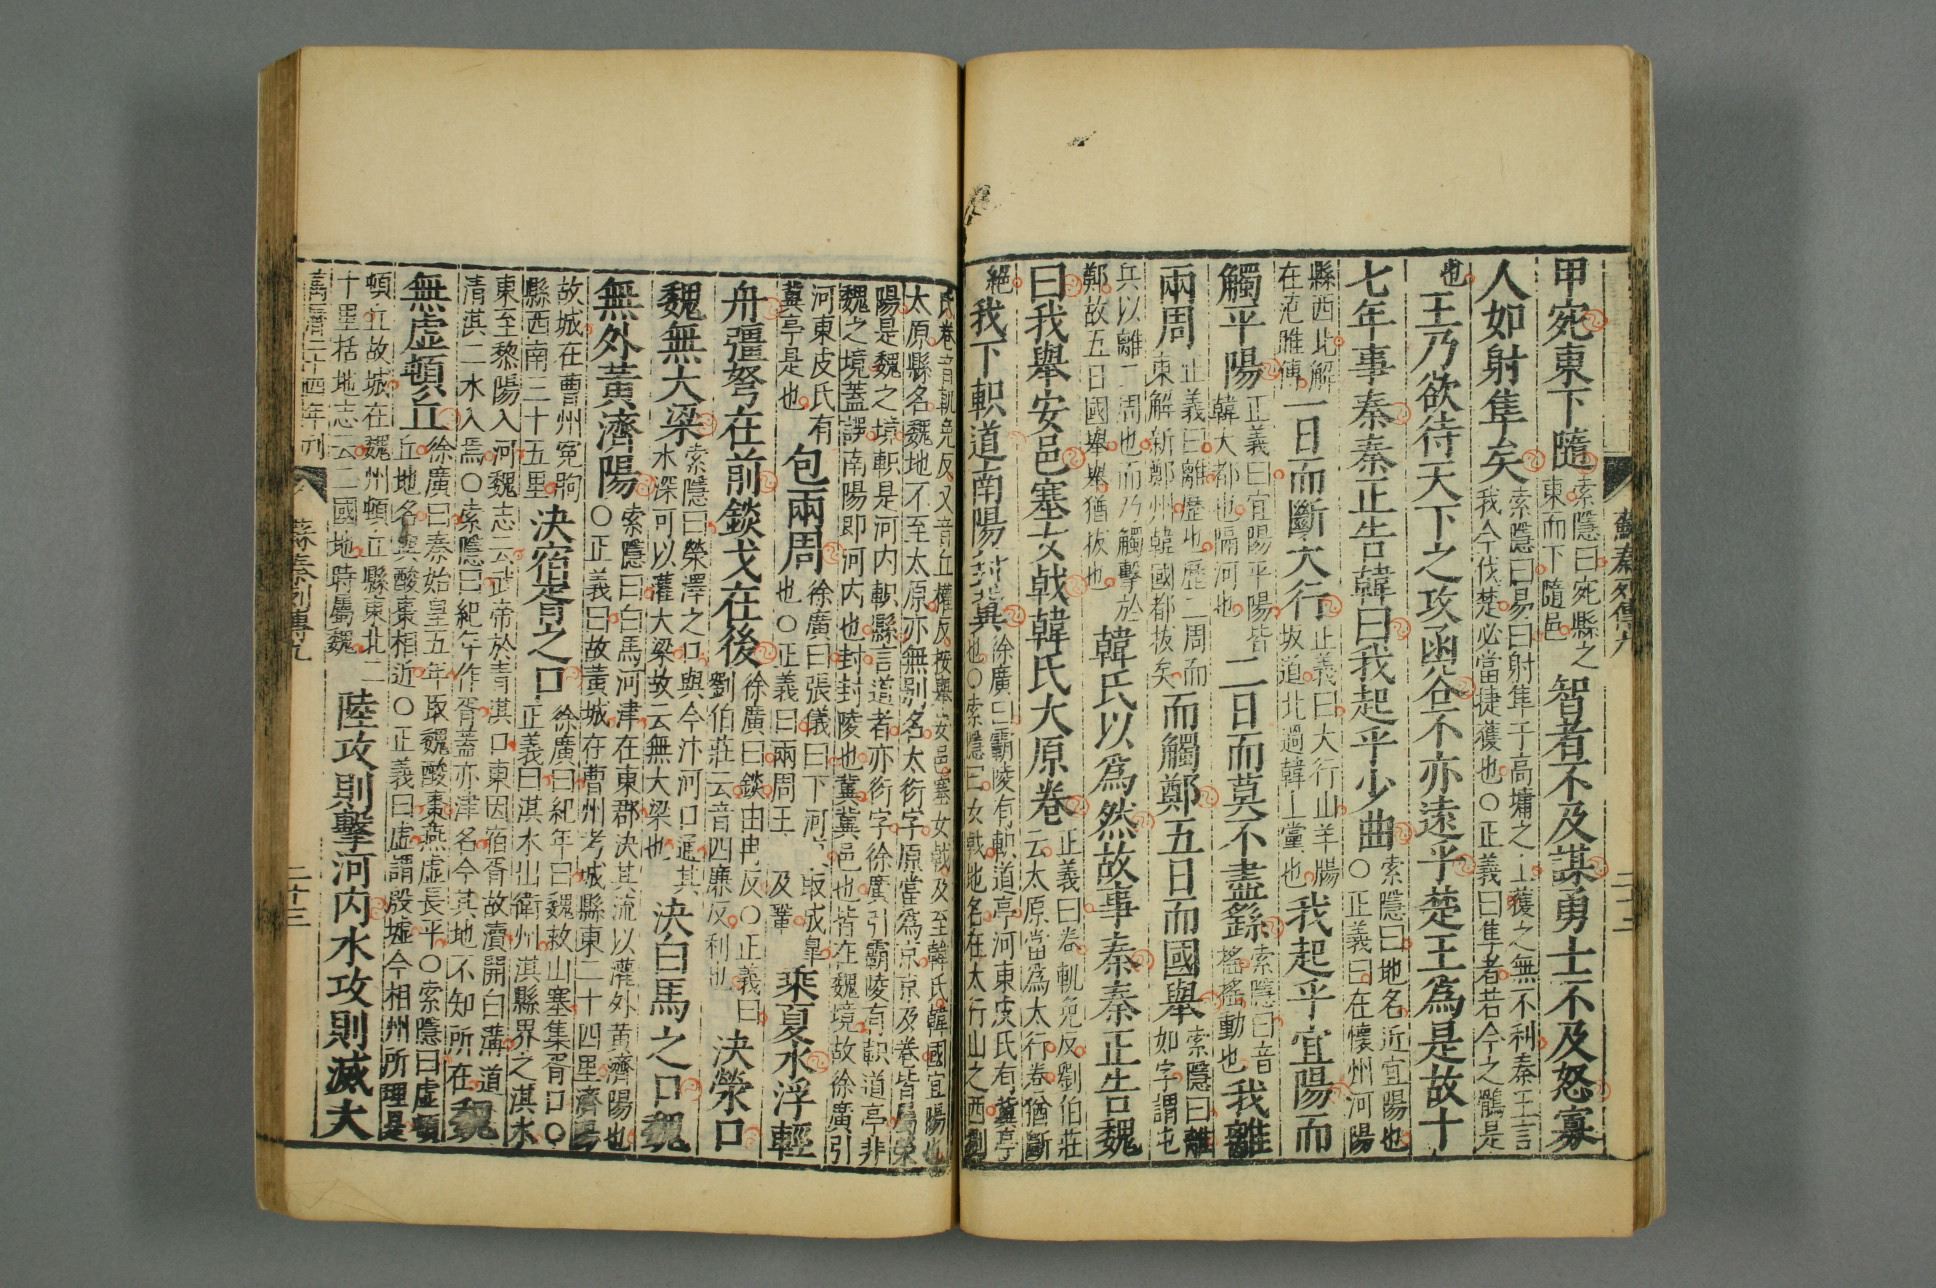 蘇秦列傳九
二十二
甲宛東下隨
索隱曰宛縣之
東而下隨邑
智者不及謀勇士不及怒寡
人如射隼矣
索隱曰易曰射隼于高墉之上獲之無不利秦王言
我今伐楚必當捷獲也○正義曰隼者若今之鶻是
也
王乃欲待天下之攻函谷不亦遠乎楚王為是故十
七年事秦秦正告韓曰我起乎少曲
索隱曰地名近宜陽也
○正義曰在懷州河陽
縣西北解
在范雎傳
一日而斷大行
正義曰大行山羊腸
坂道北過韓上黨也
我起乎宜陽而
觸平陽
正義曰宜陽平陽皆
韓大都也隔河也
二日而莫不盡繇
索隱曰音
搖搖動也
我離
兩周
正義曰離歷也歷二周而
東解新鄭州韓國都拔矣
而觸鄭五日而國舉
索隱曰離
如字謂屯
兵以離二周也而乃觸擊於
鄭故五日國舉舉猶拔也
韓氏以為然故事秦秦正告魏
曰我舉安邑塞女戟韓氏大原卷
正義曰卷軌免反劉伯莊
云太原當為太行卷猶斷
絕
我下軹道南陽封冀
徐廣曰霸陵有軹道亭河東皮氏有冀亭
也○索隱曰女戟地名在太行山之西劉
氏卷音軌免反又音丘權反按舉安邑塞女戟及至韓氏韓國宜陽也
太原縣名魏地不至太原亦無別名太衍字原當為京京及卷皆屬滎
陽是魏之境軹是河內軹縣言道者亦衍字徐廣引霸陵有軹道亭非
魏之境蓋謬南陽即河內也封封陵也冀冀邑也皆在魏境故徐廣引
河東皮氏有
冀亭是也
包兩周
徐廣曰張儀曰下河東取成皋
也○正義曰兩周王及鞏
乘夏水浮輕
舟彊弩在前錟戈在後
徐廣曰錟由冉反○正義曰
劉伯莊云音四廉反利也
決滎口
魏無大梁
索隱曰滎澤之口與今汴河口通其
水深可以灌大梁故云無大梁也
決白馬之口魏
無外黃濟陽
索隱曰白馬河津在東郡決其流以灌外黃濟陽也
○正義曰故黃城在曹州考城縣東二十四里濟陽
故城在曹州冤朐
縣西南三十五里
決宿胥之口
徐廣曰紀年曰魏救山塞集胥口○
正義曰淇水出衛州淇縣界之淇水
東至黎陽入河魏志云武帝於清淇口東因宿胥故瀆開白溝道
清淇二水入焉○索隱曰紀年作胥蓋亦津名今其地不知所在
魏
無虛頓丘
徐廣曰秦始皇五年取魏酸棗燕虛長平○索隱曰虛頓
丘地名與酸棗相近○正義曰虛謂殷墟今相州所理是
頓丘故城在魏州頓丘縣東北二
十里括地志云二國地時屬魏
陸攻則擊河內水攻則滅大
萬曆二十四年刊
蘇秦列傳九
二十三